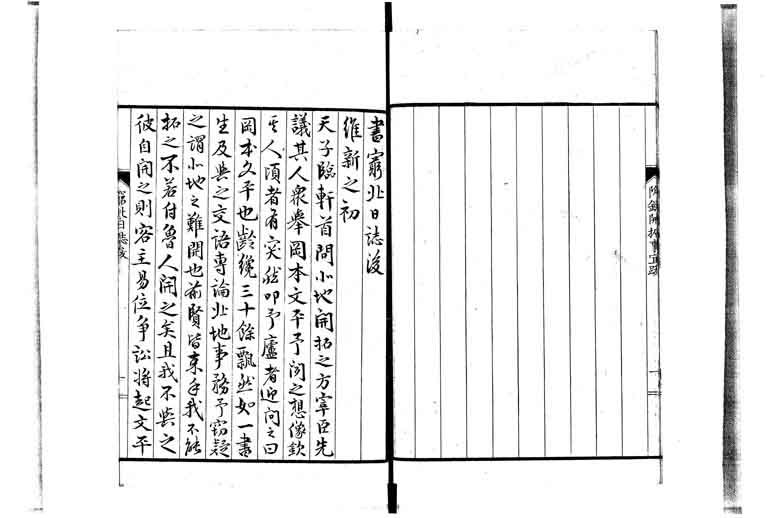 書窮北日誌後
維新之初
天子臨軒首問北地開拓之方宰臣先
議其人衆舉岡本文平予聞之想像欽
其人頃者有突然叩予廬者迎問之曰
岡本文平也齡纔三十餘飄然如一書
生及與之交語專論北地事務予窃疑
之謂北地之難開也前賢皆束手我不能
拓之不若付魯人開之矣且我不與之
彼自開之則客主易位爭訟將起文平
窮北日誌後
一
附錄開拓事宜跋
一